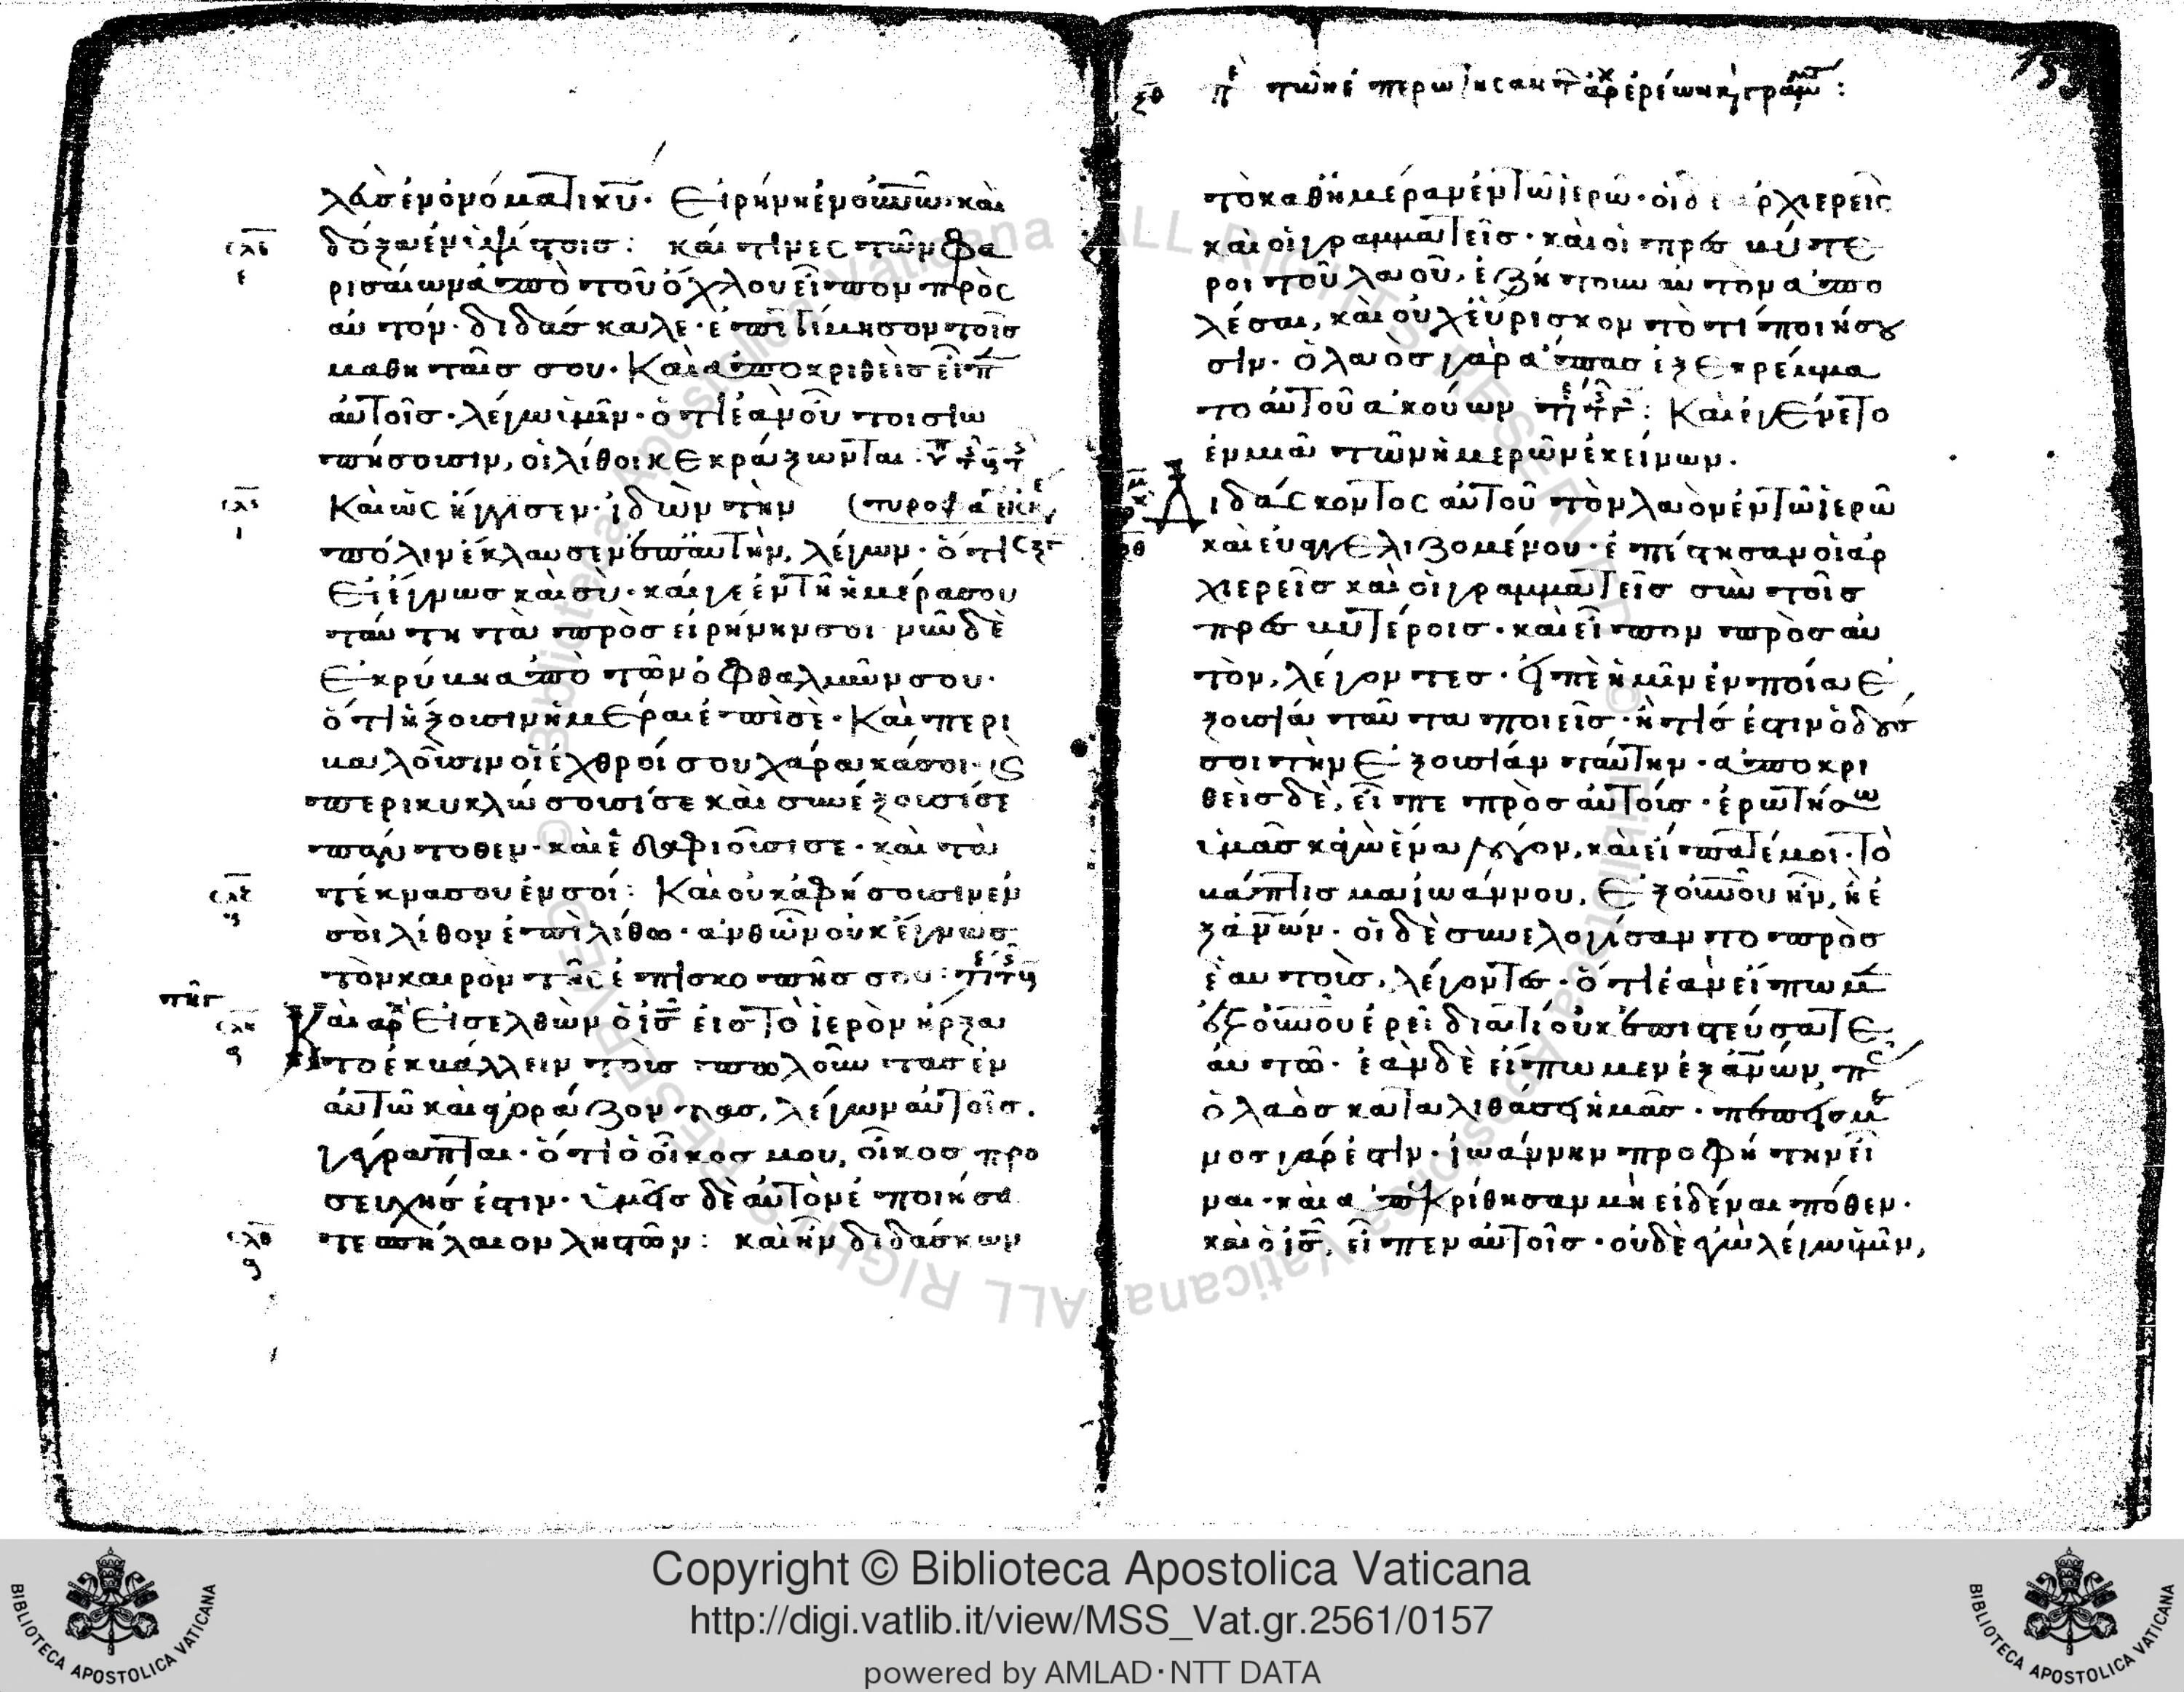 λεὺσ ἐν ὀνόματι κυ· Εἰρήνη ἐν οὐνω· καὶ
σλδ
ε
δόξα ἐν ὑψίστοισ: και τινες τῶν φα
ρισαίων ἀπὸ τοῦ ὄχλου εἶπον πρὸς
αὐτόν· διδάσκαλε· ἐπιτίμησον τοῖσ
μαθηταῖσ σου· Καὶ ἀποκριθεὶσ εἶπ
αὐτοῖσ· λέγω ὑμῖν· ὅτι ἐὰν οὗτοι σιω
πήσουσιν, οἱ λίθοι κεκράξωνται·
Καὶ ὡς ἤγγισεν· ἰδὼν τὴν
πόλιν ἔκλαυσεν ἐπ αὐτὴν, λέγων· ὅτι
Εἰ ἔγνωσ καὶ σὺ· καί γε ἐν τῆ ἡμέρα σου
ταύτη τὰ πρὸσ εἰρήνην σοι· νῦν δὲ
Εκρύβη ἀπὸ τῶν ὀφθαλμῶν σου·
ὅτι ἥξουσιν ἡμέραι ἐπὶ σὲ· Καὶ περι
βαλοῦσιν οἱ ἐχθροί σου χάρακά σοι· κς
περικυκλώσουσί σε καὶ συνέξουσί σε
πάντοθεν· καὶ ἐδαφιοῦσι σε· καὶ τὰ
τέκνα σου ἐν σοί: Καὶ οὐκ ἀφήσουσιν ἐν
σοὶ λίθον ἐπὶ λίθω· ἀνθ ὧν οὐκ ἔγνωσ
τὸν καιρὸν τῆς ἐπισκοπῆσ σου:
Καὶ Εἰσελθὼν ὁ ισ εἰσ τὸ ἱερὸν ἤρξα
το ἐκβάλλειν τοὺσ πωλοῦντασ ἐν
αὐτῶ καὶ ἀγοράζοντασ, λέγων αὐτοῖσ.
γέγραπται· ὅτι ὁ οἶκοσ μου, οἶκοσ προ
σευχῆσ ἐστιν· ὑμεῖσ δὲ αὐτὸν ἐποιήσα
σλθ
τε σπήλαιον ληστῶν: καὶ ἦν διδάσκων
ξθ περὶ τῶν ἐπερωτησάντ ἀρχιερέων κ γραμμ:
τὸ καθ ἡμέραν ἐν τῶ ἱερῶ· οἱ δὲ ἀρχιερεῖς
καὶ οἱ γραμματεῖσ· καὶ οἱ πρεσβύτε
ροι τοῦ λαοῦ, ἐζήτουν αὐτὸν ἀπο
λέσαι, καὶ οὐχ εὕρισκον τὸ τί ποιήσου
σιν· ὁ λαὸσ γὰρ ἅπασ ἐξεκρέμα
το αὐτοῦ ἀκούων: Καὶ ἐγένετο
ἐν μιᾶ τῶν ἡμερῶν ἐκείνων.
Διδάςκοντος αὐτοῦ τὸν λαὸν ἐν τῶ ἱερῶ
καὶ εὐαγγελιζομένου· ἐπέστησαν οἱ ἀρ
χιερεῖσ καὶ οἱ γραμματεῖσ σὺν τοῖσ
πρεσβυτέροισ· καὶ εἶπον πρὸσ αὐ
τὸν, λέγοντεσ· εἰπὲ ἡμῖν ἐν ποία ἐ
ξουσία ταῦτα ποιεῖσ· ἢ τίσ ἐστιν ὁ δούσ
σοι τὴν Εξουσίαν ταύτην· ἀποκρι
θεὶσ δὲ, εἶπε πρὸσ αὐτούσ· ἐρωτήσω
ὑμᾶσ κἀγὼ ἕνα λόγον, καὶ εἴπατέ μοι· τὸ
βάπτισμα ἰωάννου, Εξ οὐνου ἦν, ἢ ἐ
ξ ἀνων· οἱ δὲ συνελογίσαντο πρὸσ
ἑαυτοὺσ, λέγοντεσ· ὅτι ἐὰν εἴπωμ
ἐξ οὐνου ἐρεῖ διατί οὐκ ἐπιστεύσατε
αὐτῶ· ἐὰν δὲ εἴπωμεν ἐξ ἀνων, πᾶς
ὁ λαὸσ καταλιθάσει ἡμᾶσ· πεπεισμέ
νοσ γάρ ἐστιν· ἰωάννην προφήτην εἶ
ναι· καὶ ἀπεκρίθησαν μὴ εἰδέναι πόθεν·
καὶ ὁ ισ, εἶπεν αὐτοῖσ· οὐδὲ ἐγὼ λέγω ὑμῖν,
Copyright © Biblioteca Apostolica Vaticana
http://digi.vatlib.it/view/MSS_Vat.gr.2561/0157
powered by AMLAD·NTT DATA
BIBLIOTECA APOSTOLICA VATICANA
BIBLIOTECA APOSTOLICA VATICANA